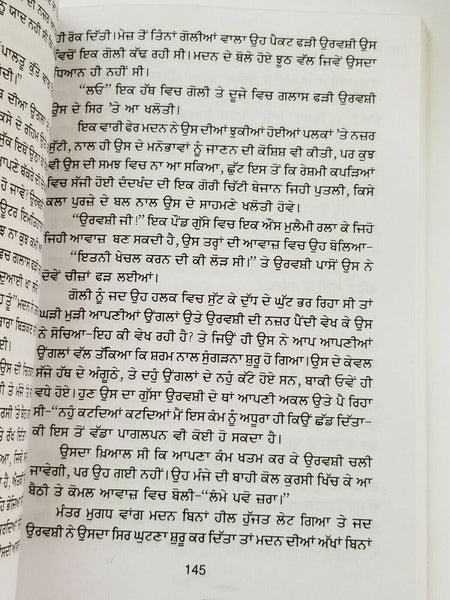 ਤੀ ਰੋਕ ਦਿੱਤੀ। ਮੇਜ਼ ਤੋਂ ਤਿੰਨਾਂ ਗੋਲੀਆਂ ਵਾਲਾ ਉਹ ਪੈਕਟ ਫੜੀ ਉਰਵਸ਼ੀ ਉਸ
ਵਿਚੋਂ ਇਕ ਗੋਲੀ ਕੱਢ ਰਹੀ ਸੀ। ਮਦਨ ਦੇ ਬੋਲੇ ਹੋਏ ਝੂਠ ਵੱਲ ਜਿਵੇਂ ਉਸਦਾ
ਧਿਆਨ ਹੀ ਨਹੀਂ ਸੀ।
"ਲਓ" ਇਕ ਹੱਥ ਵਿਚ ਗੋਲੀ ਤੇ ਦੂਜੇ ਵਿਚ ਗਲਾਸ ਫੜੀ ਉਰਵਸ਼ੀ
ਉਸ ਦੇ ਸਿਰ 'ਤੇ ਆ ਖਲੋਤੀ।
ਇਕ ਵਾਰੀ ਫੇਰ ਮਦਨ ਨੇ ਉਸ ਦੀਆਂ ਝੁਕੀਆਂ ਹੋਈਆਂ ਪਲਕਾਂ 'ਤੇ ਨਜ਼ਰ
ਸੁੱਟੀ, ਨਾਲ ਹੀ ਉਸ ਦੇ ਮਨੋਭਾਵਾਂ ਨੂੰ ਜਾਣਨ ਦੀ ਕੋਸ਼ਿਸ਼ ਵੀ ਕੀਤੀ, ਪਰ ਕੁਝ
ਵੀ ਉਸ ਦੀ ਸਮਝ ਵਿਚ ਨਾ ਆ ਸਕਿਆ, ਛੁੱਟ ਇਸ ਤੋਂ ਕਿ ਰੇਸ਼ਮੀ ਕਪੜਿਆਂ
ਵਿਚ ਸੱਜੀ ਹੋਈ ਦੰਦਖੰਦ ਦੀ ਇਕ ਗੋਰੀ ਚਿੱਟੀ ਬੇਜਾਨ ਜਿਹੀ ਪੁਤਲੀ, ਕਿਸੇ
ਕਲਾ ਪੁਰਜ਼ੇ ਦੇ ਬਲ ਨਾਲ ਉਸ ਦੇ ਸਾਹਮਣੇ ਖਲੋਤੀ ਹੋਵੇ।
"ਉਰਵਸ਼ੀ ਜੀ!" ਇਕ ਪੌਂਡ ਗੁੱਸੇ ਵਿਚ ਇਕ ਔਂਸ ਮੁਲੈਮੀ ਰਲਾ ਕੇ ਜਿਹੋ
ਜਿਹੀ ਆਵਾਜ਼ ਬਣ ਸਕਦੀ ਹੈ, ਉਸ ਤਰ੍ਹਾਂ ਦੀ ਆਵਾਜ਼ ਵਿਚ ਉਹ ਬੋਲਿਆ–
"ਇਤਨੀ ਖੇਚਲ ਕਰਨ ਦੀ ਕੀ ਲੋੜ ਸੀ।" ਤੇ ਉਰਵਸ਼ੀ ਪਾਸੋਂ ਉਸ ਨੇ
ਦੋਵੇਂ ਚੀਜ਼ਾਂ ਫੜ ਲਈਆਂ।
ਗੋਲੀ ਨੂੰ ਜਦ ਉਹ ਹਲਕ ਵਿਚ ਸੁੱਟ ਕੇ ਦੁੱਧ ਦੇ ਘੁੱਟ ਭਰ ਰਿਹਾ ਸੀ ਤਾਂ
ਘੜੀ ਮੁੜੀ ਆਪਣੀਆਂ ਉਂਗਲਾਂ ਉਤੇ ਉਰਵਸ਼ੀ ਦੀ ਨਜ਼ਰ ਪੈਂਦੀ ਵੇਖ ਕੇ ਉਸ
ਨੇ ਸੋਚਿਆ–ਇਹ ਕੀ ਵੇਖ ਰਹੀ ਹੈ? ਤੇ ਜਿਉਂ ਹੀ ਉਸ ਨੇ ਆਪ ਆਪਣੀਆਂ
ਉਂਗਲਾਂ ਵੱਲ ਤੱਕਿਆ ਕਿ ਸ਼ਰਮ ਨਾਲ ਸੁੰਗੜਨਾ ਸ਼ੁਰੂ ਹੋ ਗਿਆ। ਉਸ ਦੇ ਕੇਵਲ
ਸੱਜੇ ਹੱਥ ਦੇ ਅੰਗੂਠੇ, ਤੇ ਦਹੁੰ ਉਂਗਲਾਂ ਦੇ ਨਹੁੰ ਕੱਟੇ ਹੋਏ ਸਨ, ਬਾਕੀ ਓਵੇਂ ਹੀ
ਵਧੇ ਹੋਏ। ਹੁਣ ਉਸ ਦਾ ਗੁੱਸਾ ਉਰਵਸ਼ੀ ਦੇ ਥਾਂ ਆਪਣੀ ਅਕਲ ਉਤੇ ਪੈ ਰਿਹਾ
ਸੀ–"ਨਹੁੰ ਕਟਦਿਆਂ ਕਟਦਿਆਂ ਮੈਂ ਇਸ ਕੰਮ ਨੂੰ ਅਧੂਰਾ ਹੀ ਕਿਉਂ ਛੱਡ ਦਿੱਤਾ–
ਕੀ ਇਸ ਤੋਂ ਵੱਡਾ ਪਾਗਲਪਨ ਵੀ ਕੋਈ ਹੋ ਸਕਦਾ ਹੈ।
ਉਸਦਾ ਖ਼ਿਆਲ ਸੀ ਕਿ ਆਪਣਾ ਕੰਮ ਖਤਮ ਕਰ ਕੇ ਉਰਵਸ਼ੀ ਚਲੀ
ਜਾਵੇਗੀ, ਪਰ ਉਹ ਗਈ ਨਹੀਂ। ਉਹ ਮੰਜੇ ਦੀ ਬਾਹੀ ਕੋਲ ਕੁਰਸੀ ਖਿੱਚ ਕੇ ਆ
ਬੈਠੀ ਤੇ ਕੋਮਲ ਆਵਾਜ਼ ਵਿਚ ਬੋਲੀ–"ਲੰਮੇ ਪਵੋ ਜ਼ਰਾ।"
ਮੰਤਰ ਮੁਗਧ ਵਾਂਗ ਮਦਨ ਬਿਨਾਂ ਹੀਲ ਹੁੱਜਤ ਲੇਟ ਗਿਆ ਤੇ ਜਦ
ਉਰਵਸ਼ੀ ਨੇ ਉਸਦਾ ਸਿਰ ਘੁਟਣਾ ਸ਼ੁਰੂ ਕਰ ਦਿੱਤਾ ਤਾਂ ਮਦਨ ਦੀਆਂ ਅੱਖਾਂ ਬਿਨਾਂ
145